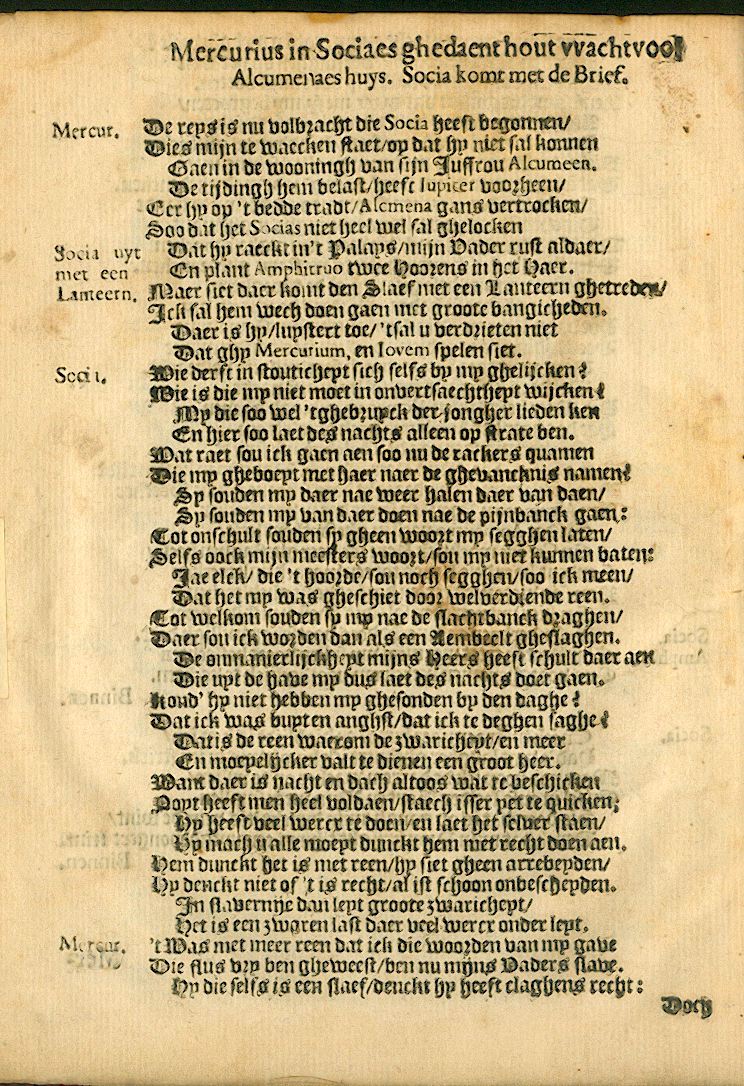 Mercurius in Sociaes ghedaent hout vvacht voor
Alcumenaes huys. Socia komt met de Brief.
Mercur. De reys is nu volbracht die Socia heeft begonnen/
Dies mijn te waecken staet/op dat hy niet sal konnen
Gaen in de wooningh van sijn Juffrou Alcumeen.
De tijdingh hem belast/heeft Iupiter voorheen/
Eer hy op 't bedde tradt/Alcmena gans vertrocken/
Soo dat het Socias niet heel wel sal ghelocken
Socia uyt met een Lanteern. Dat hy raeckt in't Palays/mijn Vader rust aldaer/
En plant Amphitruo twee Hoorens in het Haer.
Maer siet daer komt den Slaef met een Lanteern ghetreden/
Ick sal hem wech doen gaen met groote bangicheden.
Daer is hy/luystert toe/'tsal u verdrieten niet
Dat ghy Mercurium, en Iovem spelen siet.
Socia. Wie derft in stouticheyt sich selfs by my ghelijcken?
Wie is die my niet moet in onvertsaechtheyt wijcken?
My die soo wel 'tghebruyck der jongher lieden ken
En hier soo laet des nachts alleen op strate ben.
Wat raet sou ick gaen aen soo nu de rackers quamen
Die my gheboeyt met haer naer de ghevancknis namen?
Sy souden my daer nae weer halen daer van daen/
Sy souden my van daer doen nae de pijnbanck gaen:
Tot onschult souden sy gheen woort my segghen laten/
Selfs oock mijn meesters woort/sou my niet kunnen baten:
Jae elck/ die 't hoorde/sou noch segghen/soo ick meen/
Dat het my was gheschiet door welverdiende reen.
Tot welkom souden sy my nae de slachtbanck draghen/
Daer sou ick worden dan als een Aembeelt gheslaghen.
De onmanierlijckheyt mijns Heers heeft schult daer aen
Die uyt de have my dus laet des nachts doet gaen.
Kond' hy niet hebben my ghesonden by den daghe?
Dat ick was buyten anghst/dat ick te deghen saghe?
Dat is de reen waerom de zwaricheyt/en meer
En moeyelijcker valt te dienen een groot heer.
Want daer is nacht en dach altoos wat te beschicken
Noyt heeft men heel voldaen/staech isser yet te quicken;
Hy heeft veel wercx te doen/en laet het selver staen/
Hy mach u alle moeyt dunckt hem met recht doen aen.
Hem dunckt het is met reen/hy siet gheen arrebeyden/
Hy denckt niet of 't is recht/al ist schoon onbescheyden.
In slavernije dan leyt groote zwaricheyt/
Het is een zwaren last daer veel wercx onder leyt.
Mercur. 't Was met meer reen dat ick die woorden van my gave
Die flus vry ben gheweest/ben nu mijns Vaders slave.
Hy die selfs is een slaef/denckt hy heeft claghens recht:
Doch